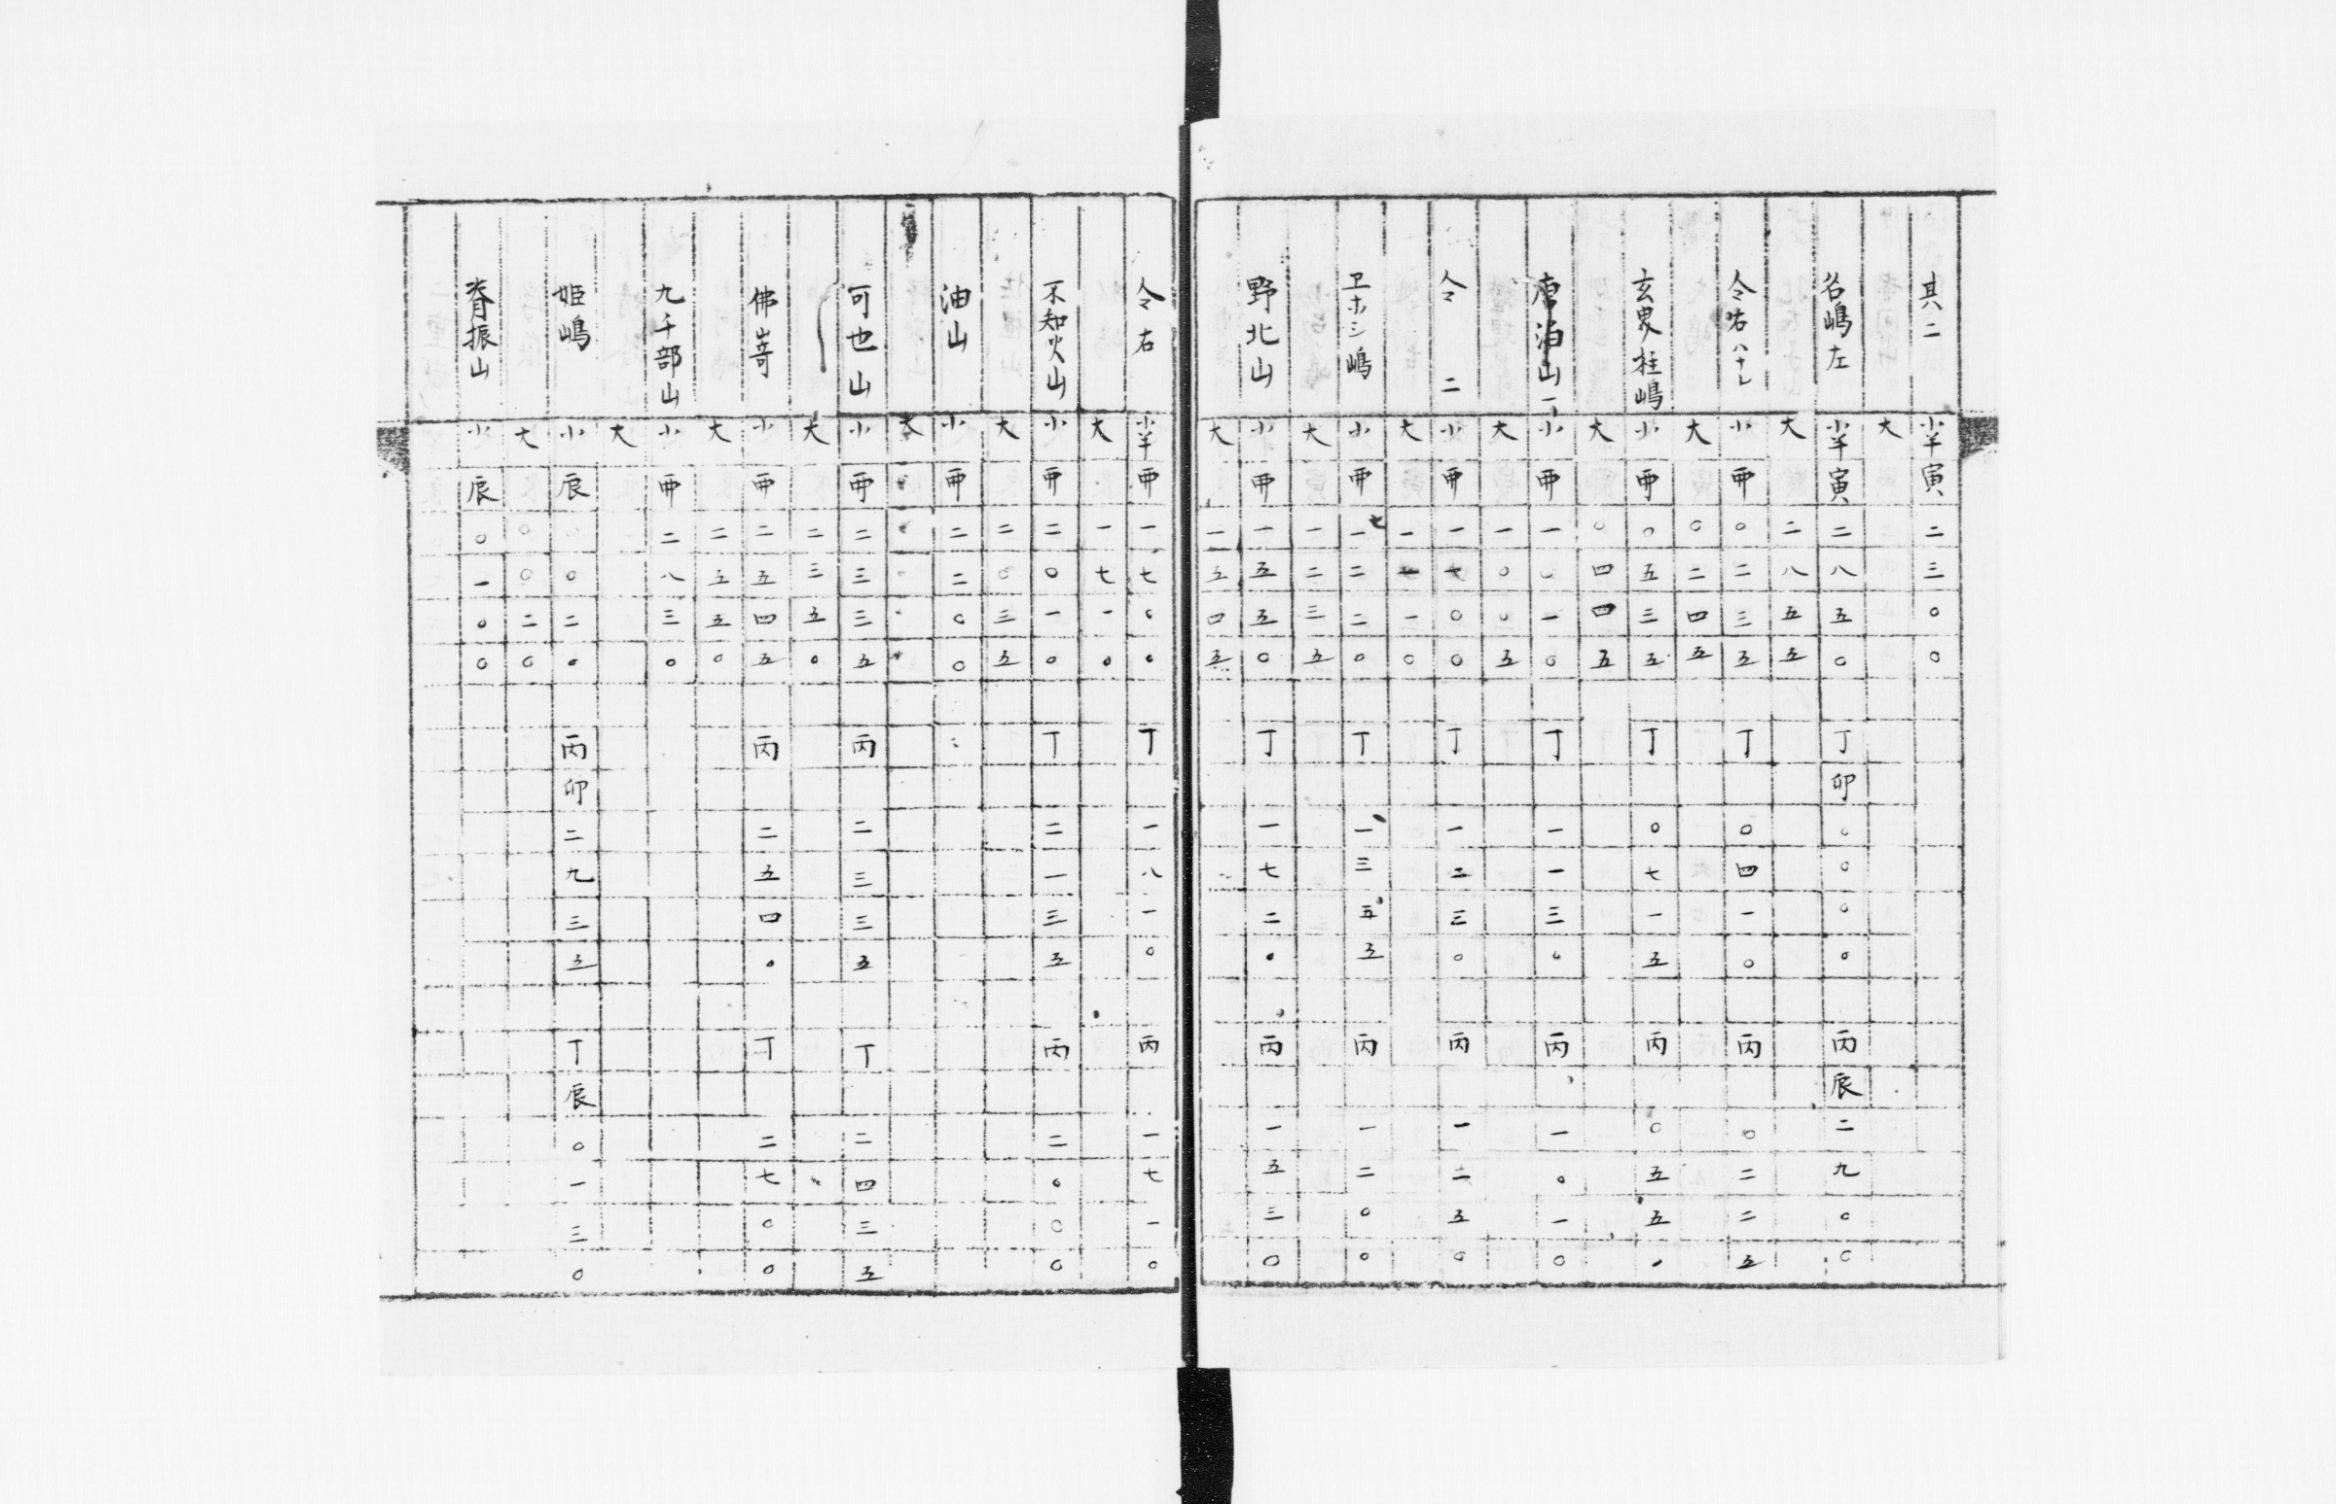 其二 小半 寅 二三〇〇
大
名嶋左 小半 寅 二八五〇 丁 卯 〇〇〇〇 丙 辰 二九〇〇
大 二八五五
仝右ハナレ 小 丙 〇二三五 丁 〇四一〇 丙 〇二二五
大 〇二四五
玄界柱嶋 小 丙 〇五三五 丁 〇七一五 丙 〇五五〇
大 〇四四五
唐泊山一 小 丙 一〇一〇 丁 一一三〇 丙 一〇一〇
大 一〇〇五
仝二 小 丙 一七〇〇 丁 一二三〇 丙 一二五〇
大 一七一〇
ヱホシ嶋 小 丙 一二二〇 丁 一三五五 丙 一二〇〇
大 一二三五
野北山 小 丙 一五五〇 丁 一七二〇 丙 一五三〇
大 一五四五
仝右 小半 丙 一七〇〇 丁 一八一〇 丙 一七一〇
大 一七一〇
不知火山 小 丙 二〇一〇 丁 二一三五 丙 二〇〇〇
大 二〇三五
油山 小 丙 二二〇〇
大
可也山 小 丙 二三三五 丙 二三三五 丁 二四三五
大 二三五〇
佛嵜 小 丙 二五四五 丙 二五四〇 丁 二七〇〇
大 二五五〇
九千部山 小 丙 二八三〇
大
姫嶋 小 辰 〇二〇 丙 卯 二九三五 丁 辰 〇一三〇
大 〇〇二〇
脊振山 小 辰 〇一〇〇